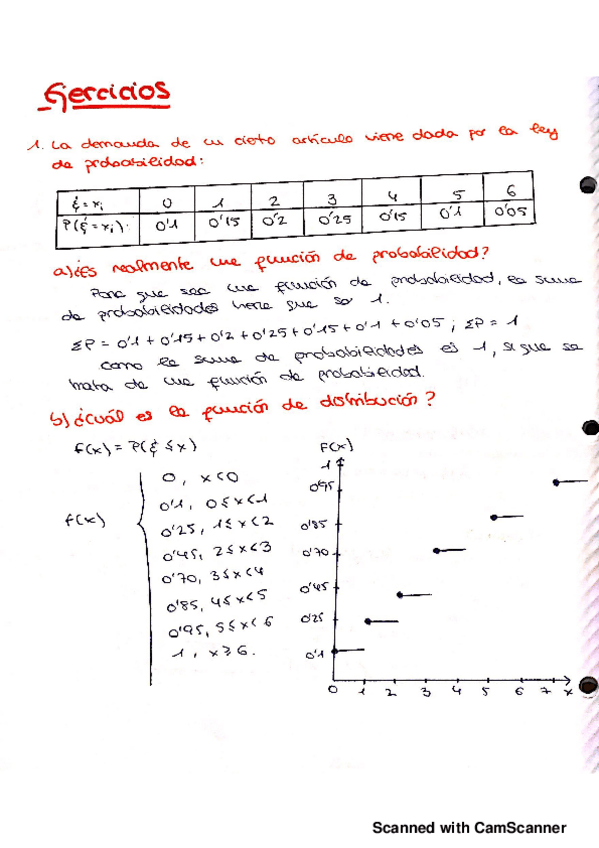 Ejercicios
1. La demanda de un cierto artículo viene dada por la ley
de probabilidad:
ξ = xi 0 1 2 3 4 5 6
P(ξ = xi): 0'1 0'15 0'2 0'25 0'15 0'1 0'05
a) ¿es realmente una función de probabilidad?
Para que sea una función de probabilidad, la suma
de probabilidades tiene que ser 1.
ΣP = 0'1 + 0'15 + 0'2 + 0'25 + 0'15 + 0'1 + 0'05 ; ΣP = 1
como la suma de probabilidades es 1, si que se
trata de una función de probabilidad.
b) ¿cuál es la función de distribución?
F(x) = P(ξ ≤ x)
F(x)
0, x<0
0'1, 0≤x<1
0'25, 1≤x<2
0'45, 2≤x<3
0'70, 3≤x<4
0'85, 4≤x<5
0'95, 5≤x<6
1, x≥6.
F(x)
1
0'95
0'85
0'70
0'45
0'25
0'1
0 1 2 3 4 5 6 7 x
Scanned with CamScanner